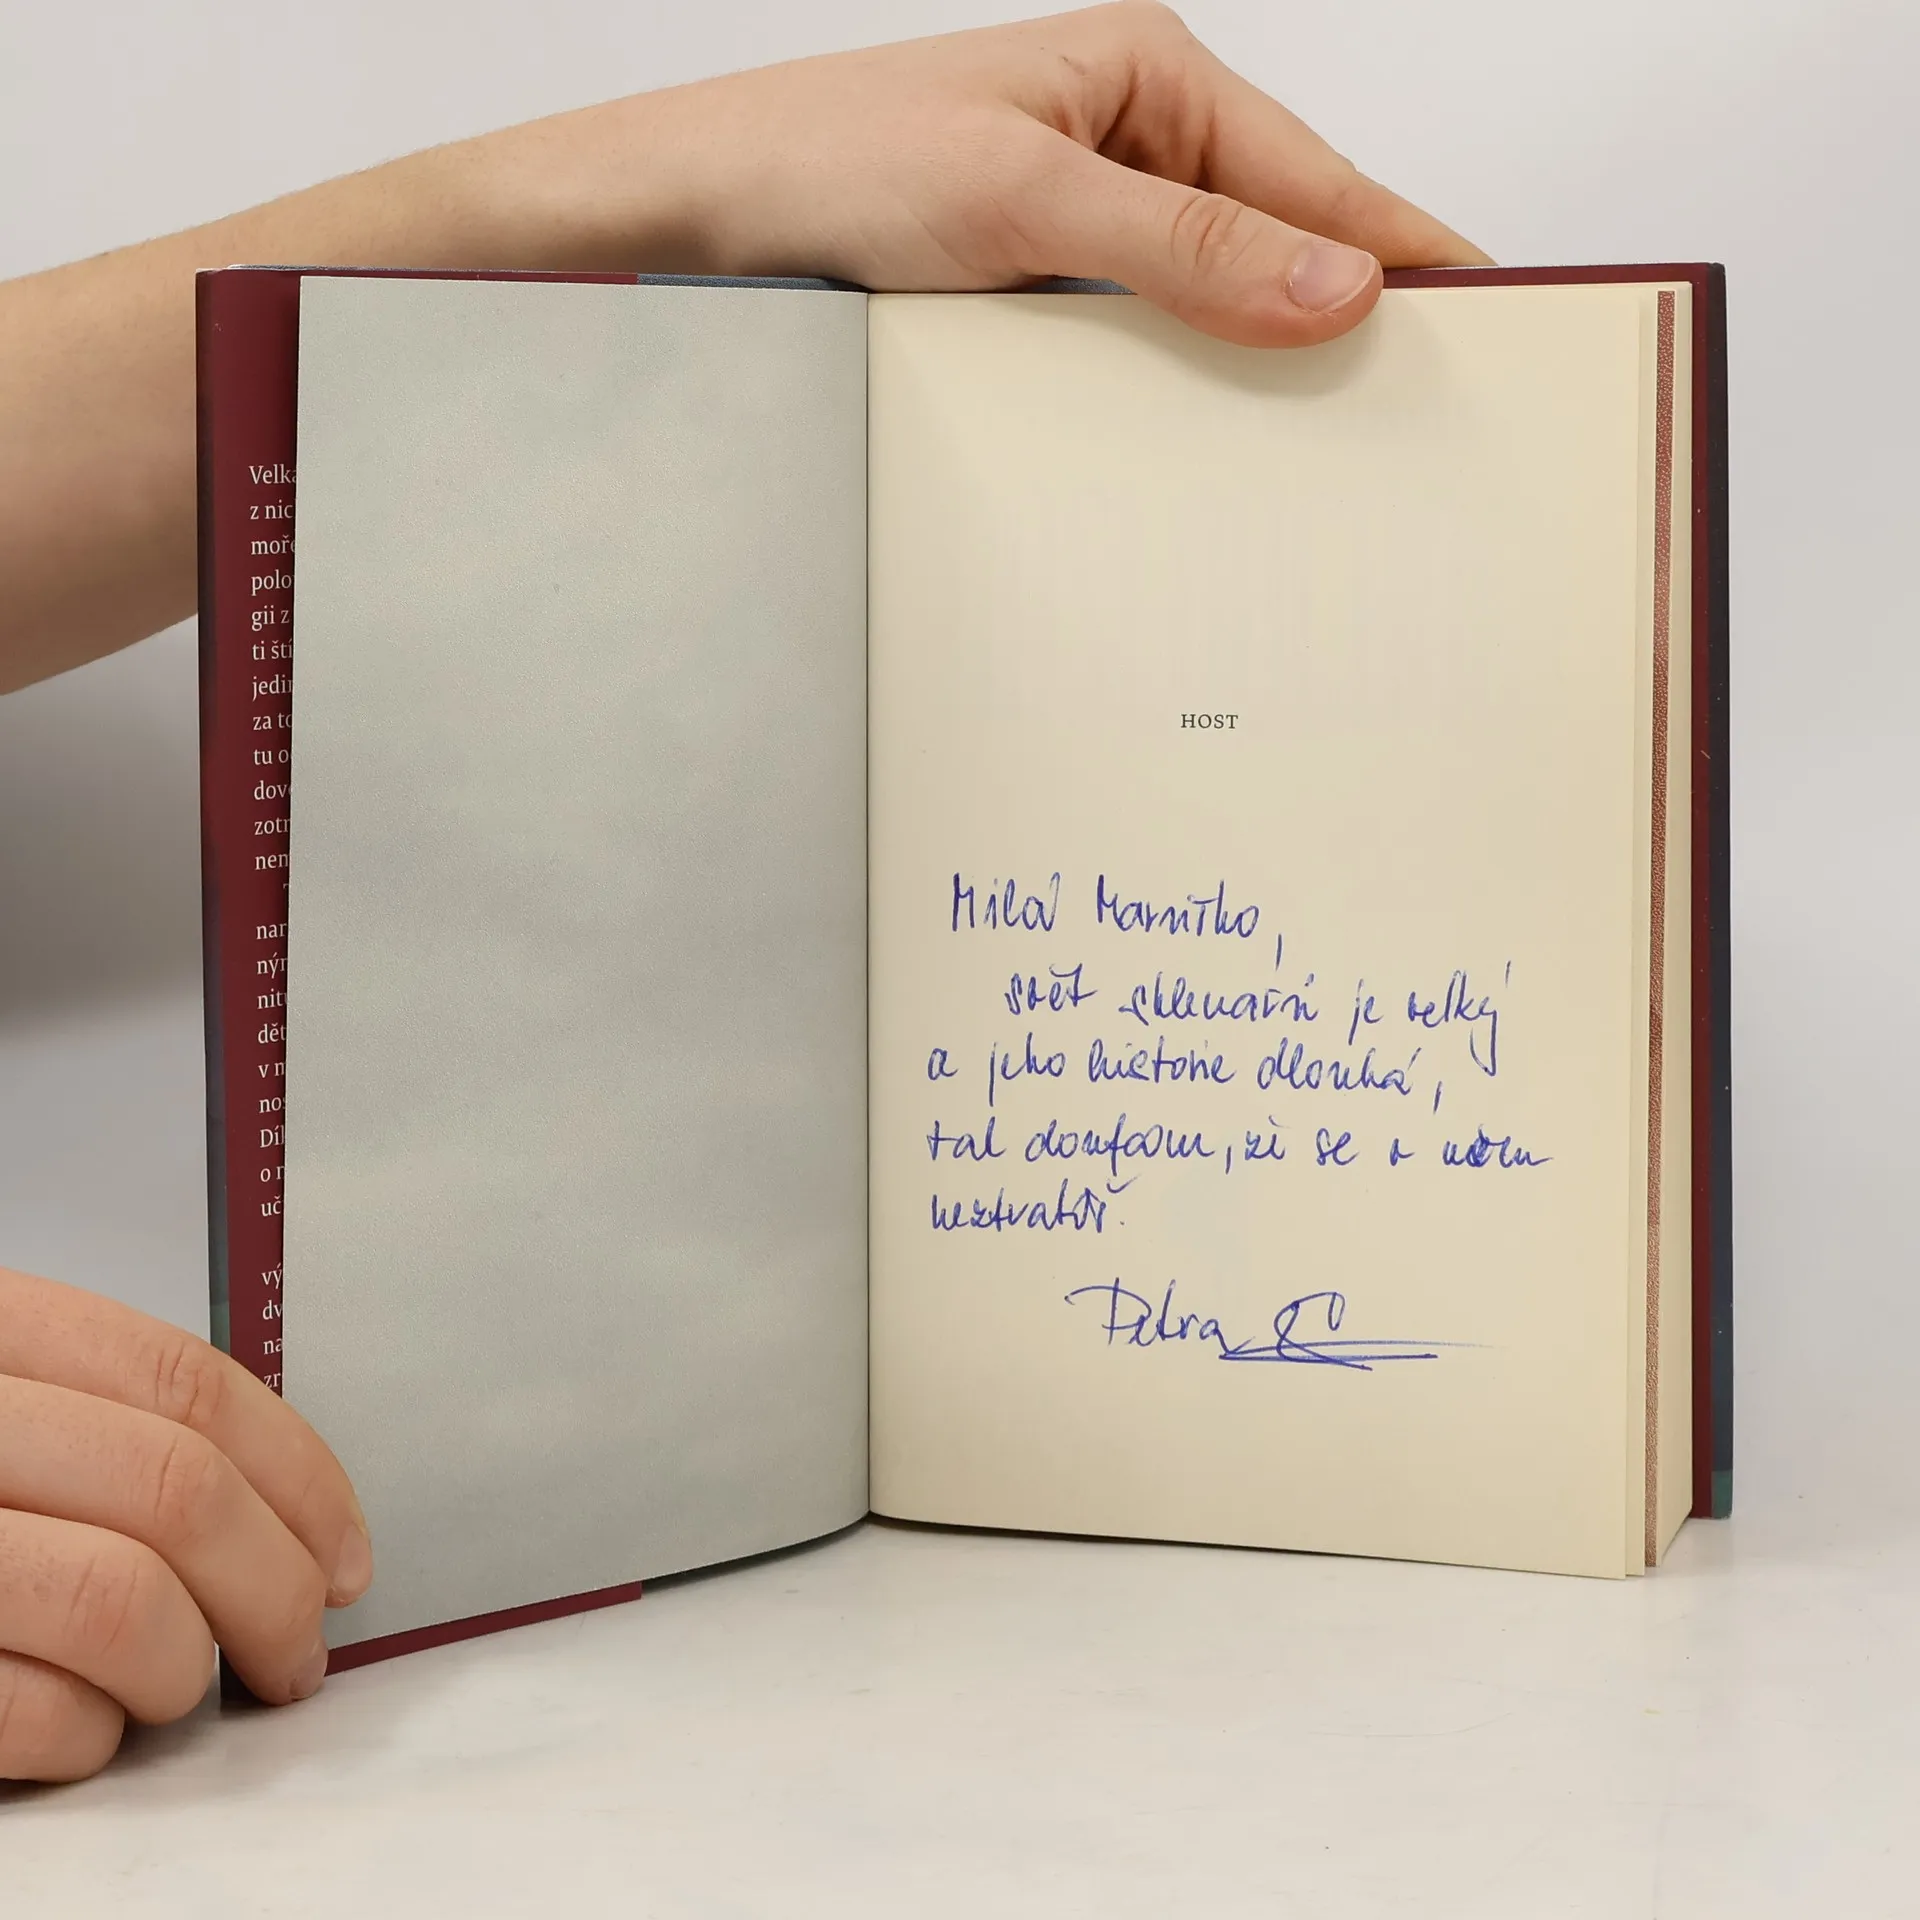 Velká
z nic
moře
polo
gii z
ti ští
jedin
za to
tu o
dov
zotr
nem
nar
ným
nitu
dět
v n
nos
Díl
o n
uč
vý
dv
na
zr
HOST
Milá Marnitko,
svět sklenařin je velký
a jeho historie dlouhá,
tak doufám, že se v něm
neztratíš.
Petra